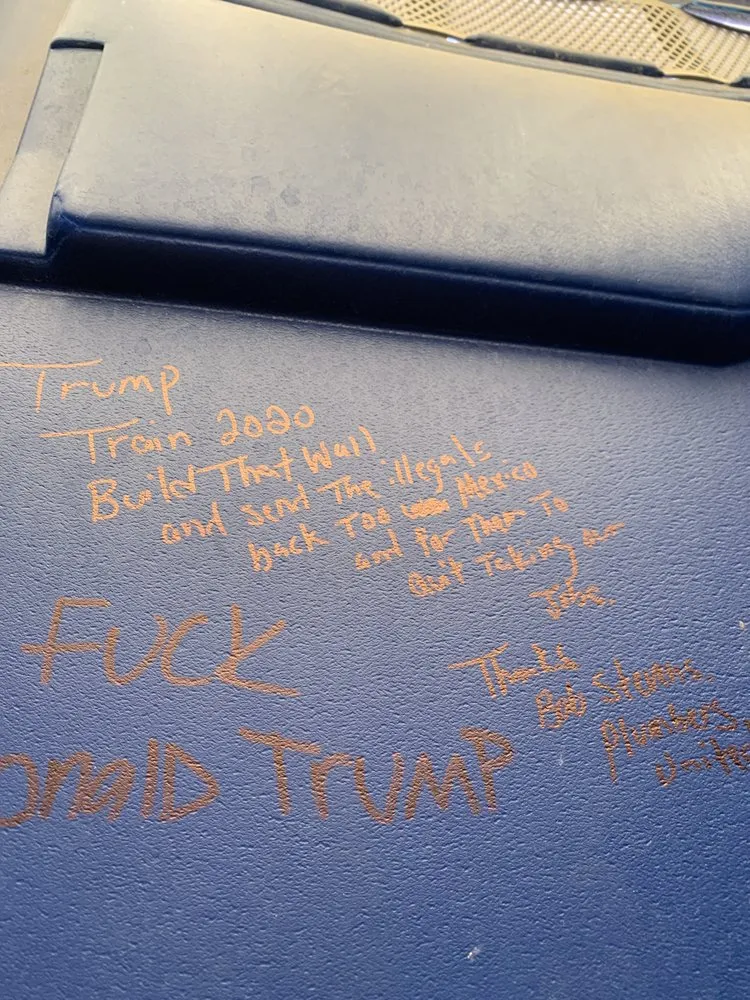 Trump
Train 2020
Build That Wall
and send The illegals
back Too Mexico
and for Them To
Quit Taking our
Jobs.
Thanks
Bob Stevens,
Plumbers,
United
FUCK
Donald TRUMP